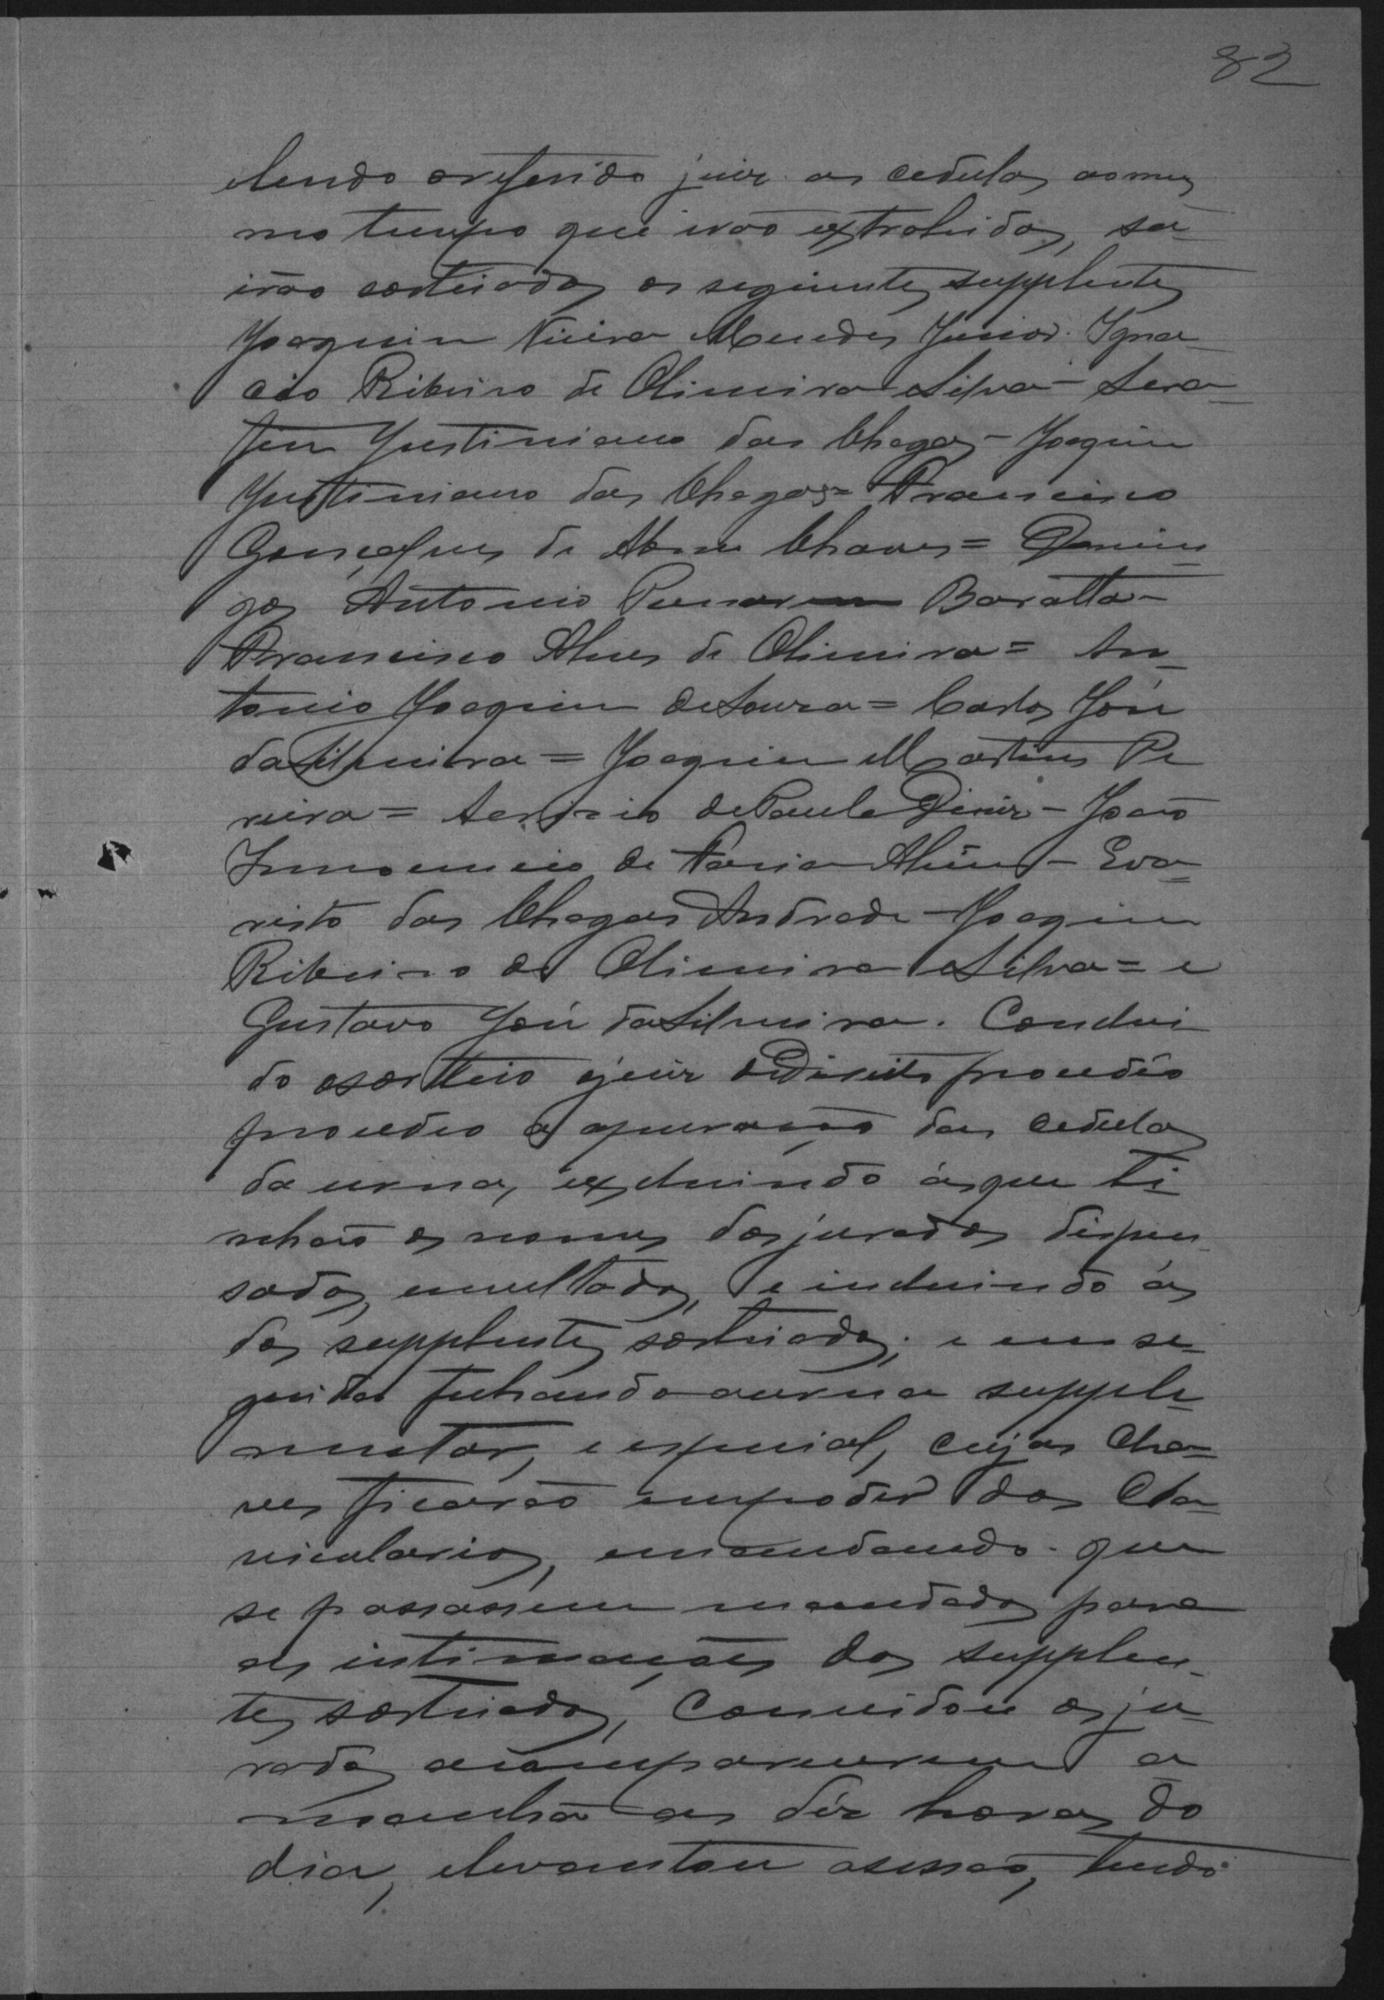 82
elendo oreferido juiz as cedulas aomes
mo tempo que irão extrahidas, sa-
irão sorteiados os seguintes supplentes
Joaquim Vieira Mendes Junior. Igna-
cio Ribeiro de Oliveira e Silva - Sera-
fim Justiniano das Chagas - Joaquim
Justiniano das Chagas = Francisco
Gonçalves de Abreu Chaves = Domin-
gos Antonio Baratta -
Francisco Alves de Oliveira = An-
tonio Joaquim de Souza = Carlos José
da Silveira = Joaquim Martins Pe
reira = de Paula Diniz - João
Innocencio de Faria Alvim - Eva-
risto das Chagas Andrade - Joaquim
Ribeiro de Oliveira e Silva = e
Gustavo José da Silveira. Conclui
do osorteio ojuiz de Direito procedeo
procedeo a apuração das cedulas
da urna, excluindo ás que ti-
nhão os nomes dos jurados dispen
sados, emultados, e incluindo ás
dos supplentes sorteiados; e em se-
guida fechando aurna supple-
mentar, e especial, cujas cha-
ves ficarão empoder dos Cla-
vicularios, emandando que
se passassem mandados para
as intimações dos supplen-
tes sorteiados, Convidou os ju-
rados acompareserem a
manhã as déz horas do
dia, elevantou asessão, tendo